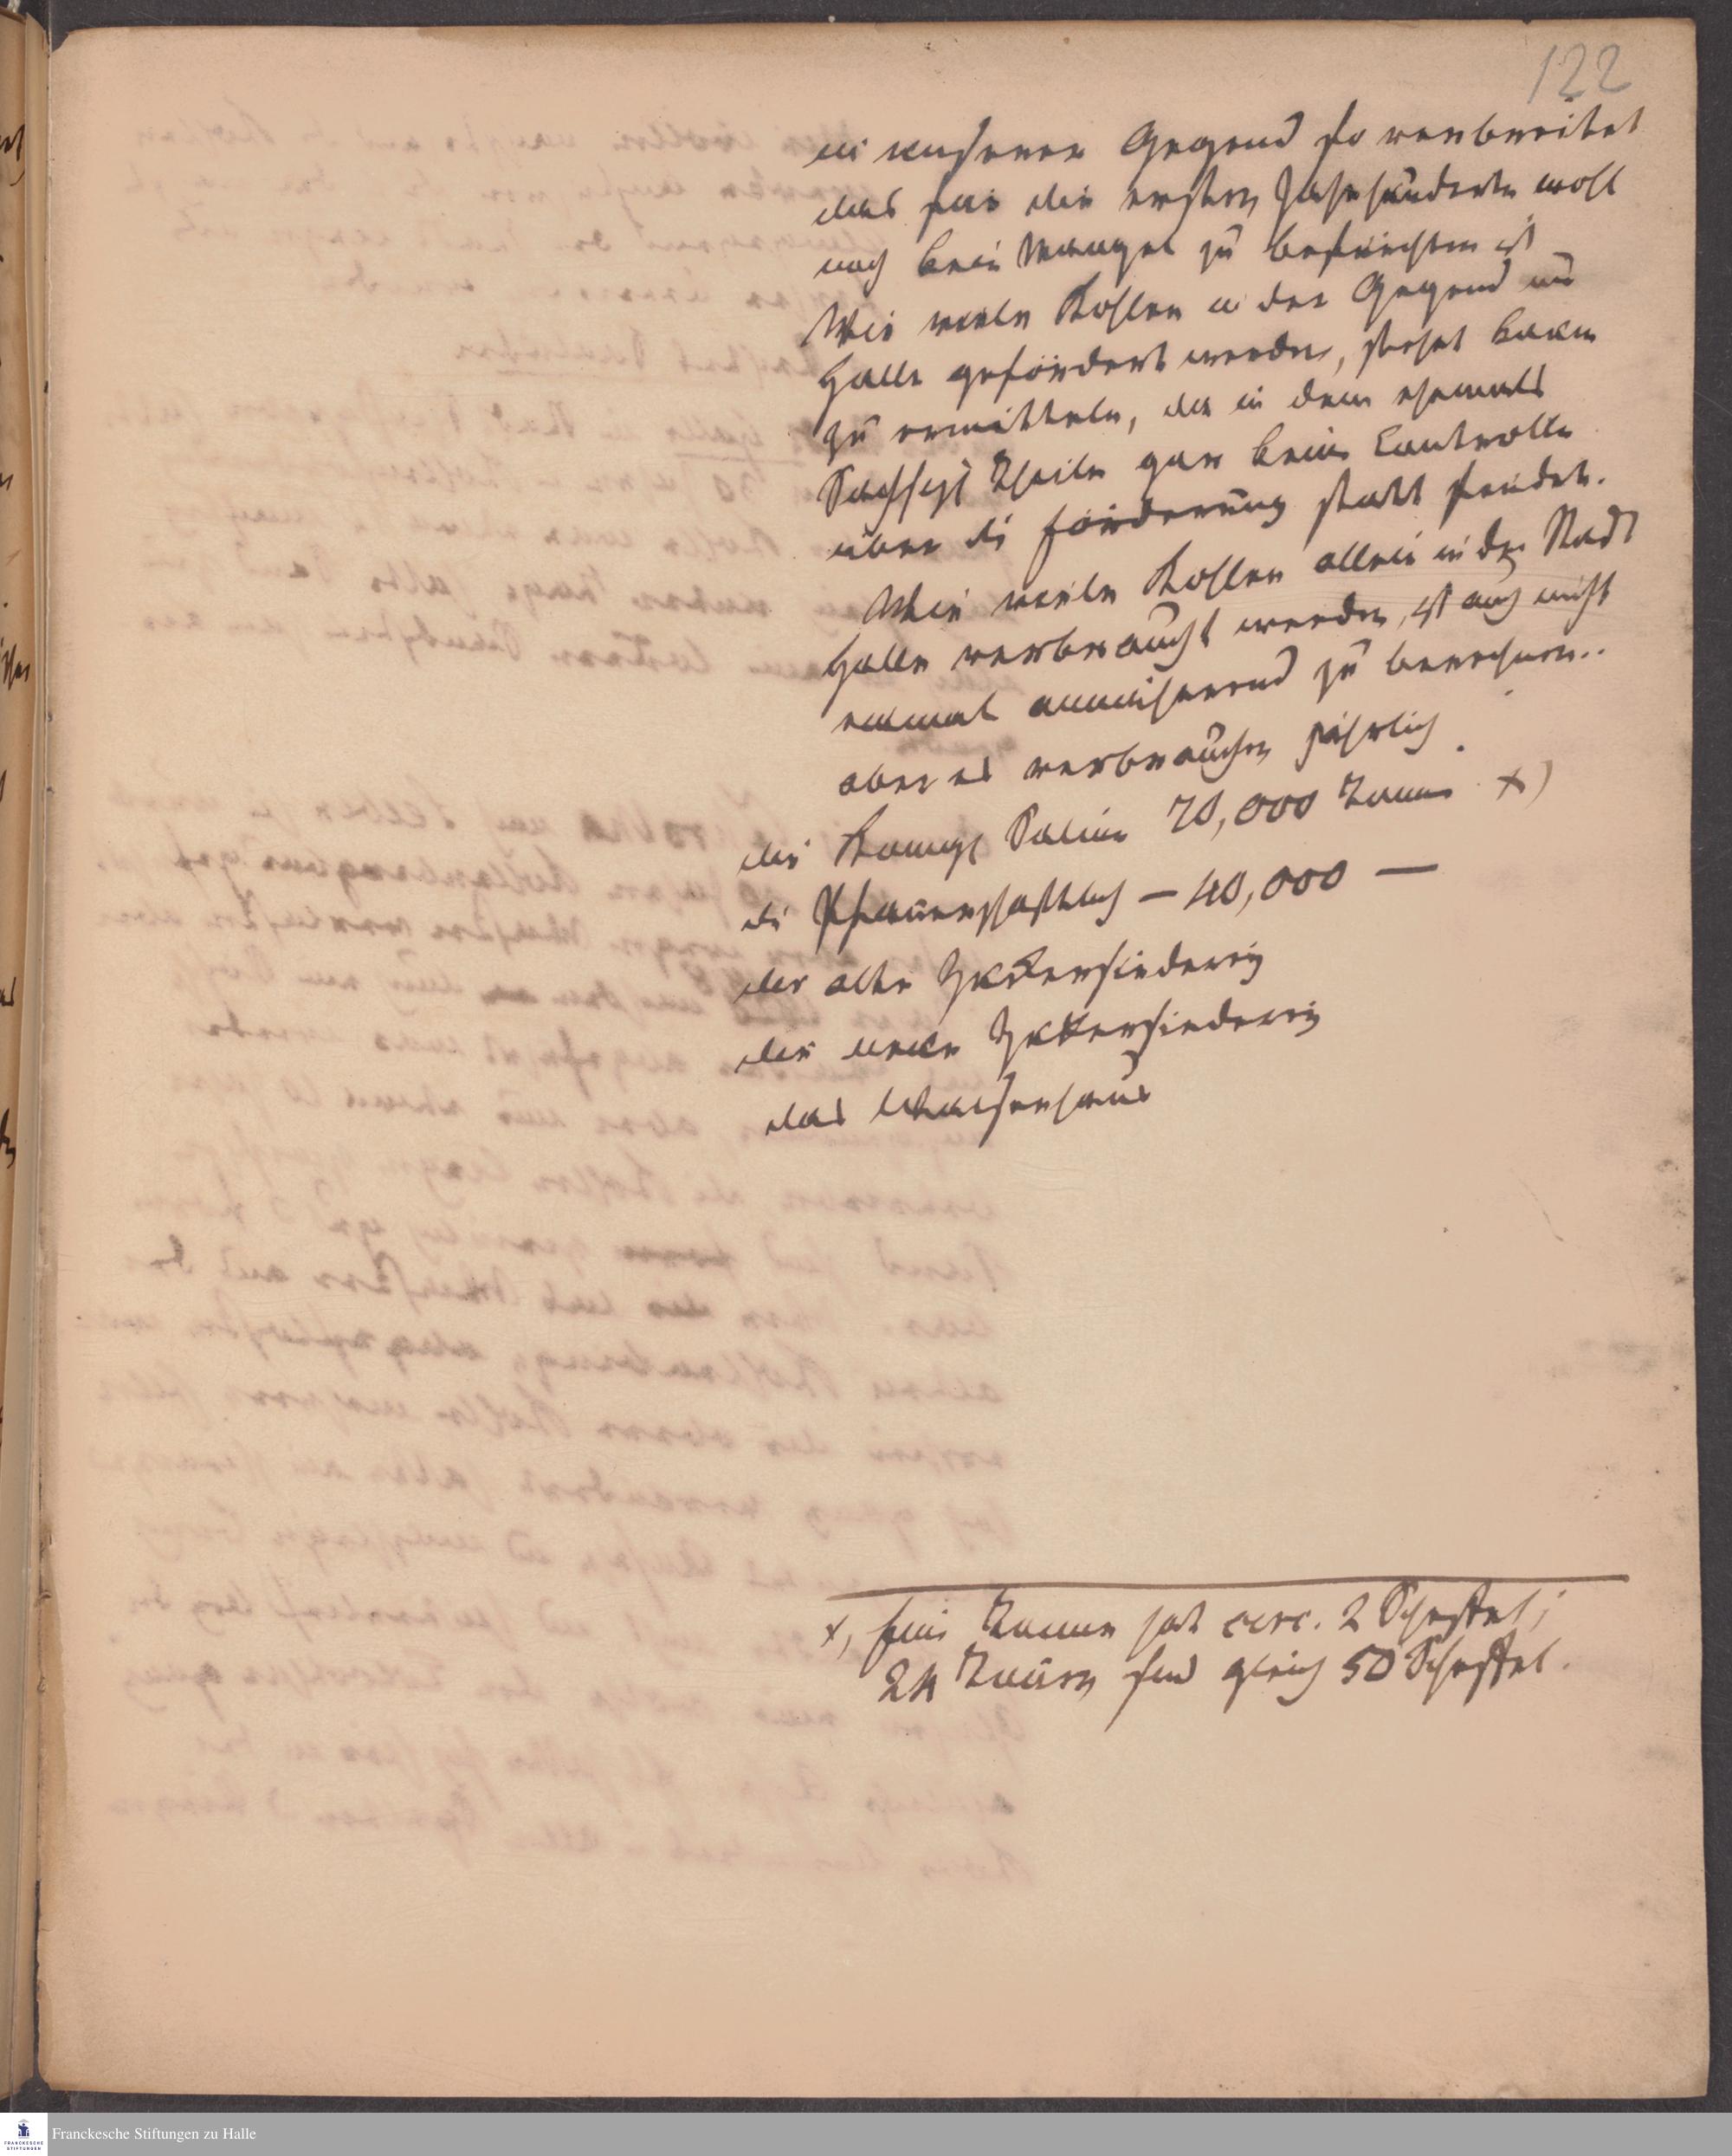 122
in unserer Gegend so verbreitet
das für die ersten Jahrhunderte wohl
noch kein Mangel zu befürchten ist
Wie viele Kohlen in der Gegend um
Halle gefördert werden, stehet kaum
zu ermitteln, da in dem ehemals
Sächsch Theile gar keine Controlle
über die Förderung statt findet.
Wie viele Kohlen allein in der Stadt
Halle verbraucht werden, ist auch nicht
einmal annähernd zu berechnen..
aber es verbrauchen jährlich
die Königl Saline 70,000 Tonne x)
die Pfännerschaftlich — 40,000 —
die alte Zuckersiederey
die neue Zuckersiederey
das Waisenhaus
x, Eine Tonne hat circ. 2 Scheffel;
24 Tonnen sind gleich 50 Scheffel.
Franckesche Stiftungen zu Halle
FRANCKESCHE
STIFTUNGEN